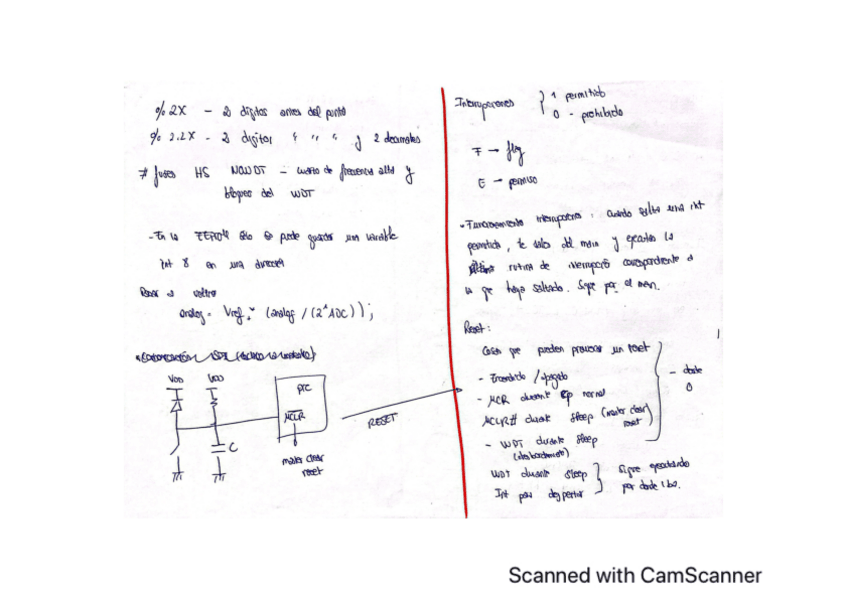 % 2X - 2 digitos antes del punto
% 2.2X - 2 digitos " " " y 2 decimales
# fuses HS NOWDT - cuarzo de frecuencia alta y
bloqueo del WDT
- En la EEPROM solo se puede guardar una variable
int 8 en una dirección
Pasar a voltios
analog = Vref * (analog / (2^ADC));
VDD
VDD
PIC
MCLR
C
master clear
reset
RESET
Interrupciones
1 permitido
0 - prohibido
F → flag
E → permiso
- Funcionamiento interrupciones: cuando salta una int
permitida, te sales del main y ejecutas la
rutina de interrupción correspondiente a
la que haya saltado. Sigue por el main.
Reset:
Cosas que pueden provocar un reset
- Encendido / apagado
- MCR durante op normal
MCLR# durante sleep (master clear
reset)
- WDT durante sleep
(desbordamiento)
- desde
0
WDT durante sleep
Int para despertar
Sigue ejecutando
por donde iba.
Scanned with CamScanner